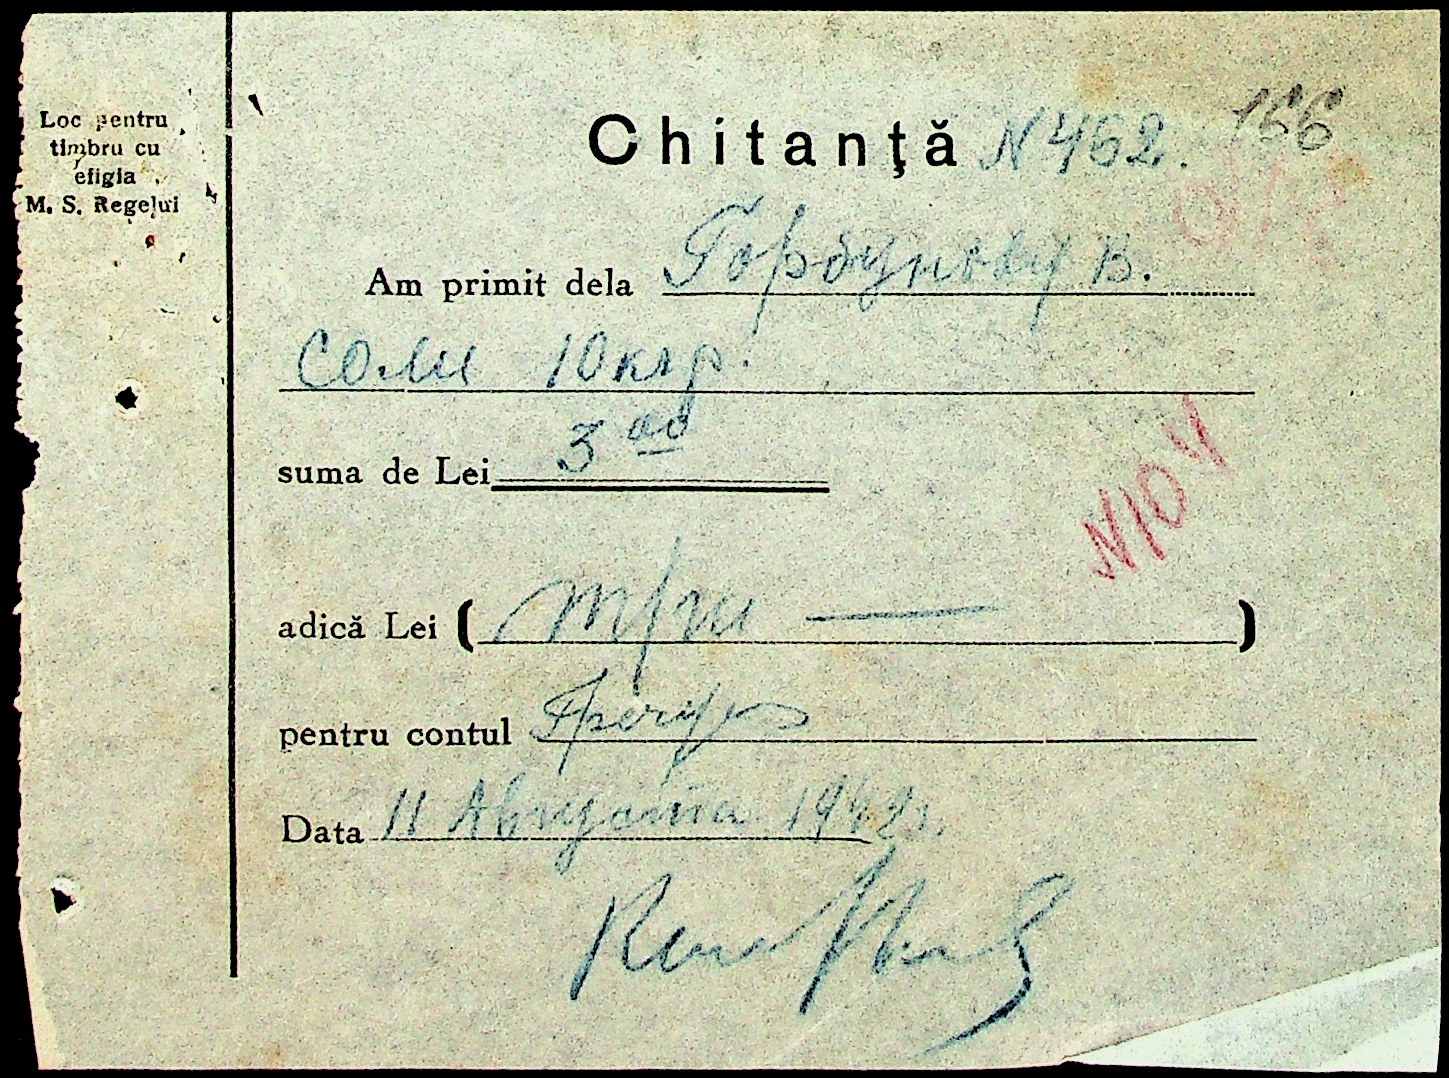 Loc pentru
timbru cu
efigia
M. S. Regelui
166
Chitanţă N 462.
Am primit dela Горбунову В.
соли 10 клгр.
suma de Lei 3 00
N 104
adică Lei (три —)
pentru contul
Data 11 Августа 1942г.